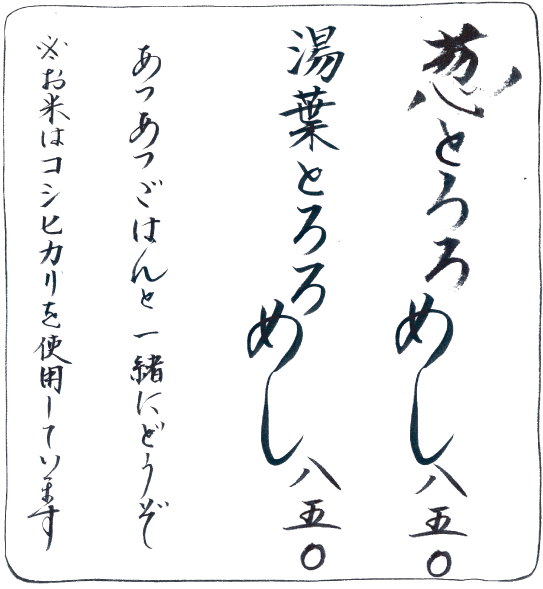 葱とろろめし 八五〇
湯葉とろろめし 八五〇
あつあつごはんと一緒にどうぞ
※お米はコシヒカリを使用しています